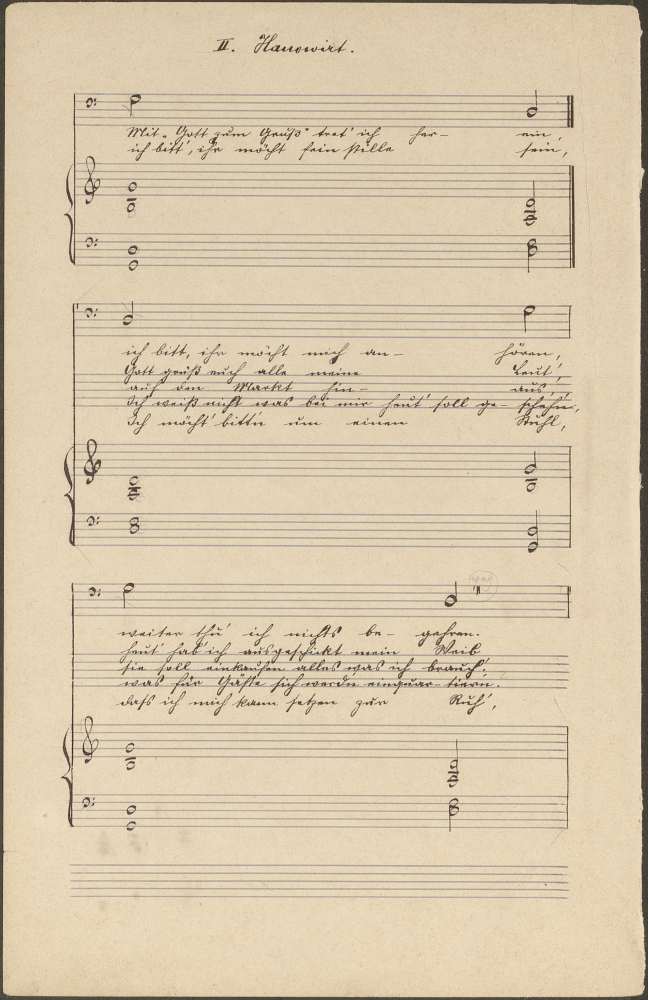 II. Hauswirt.
Mit „Gott zum Gruß" tret' ich her- ein,
ich bitt', ihr möcht fein stille sein,
ich bitt, ihr möcht mich an- hören,
Gott grüß euch alle meine Leut',
auf den Markt hin- aus,
Ich weiß nicht was bei mir heut' soll ge- scheh'n,
Ich möcht' bitt'n um einen Stuhl,
weiter thu' ich nichts be- gehren.
heut' hab' ich ausgeschickt mein Weib
sie soll einkaufen alles was ich brauch'.
was für Gäste sich werd'n einquar- tieren.
dass ich mich kann setzen zur Ruh',